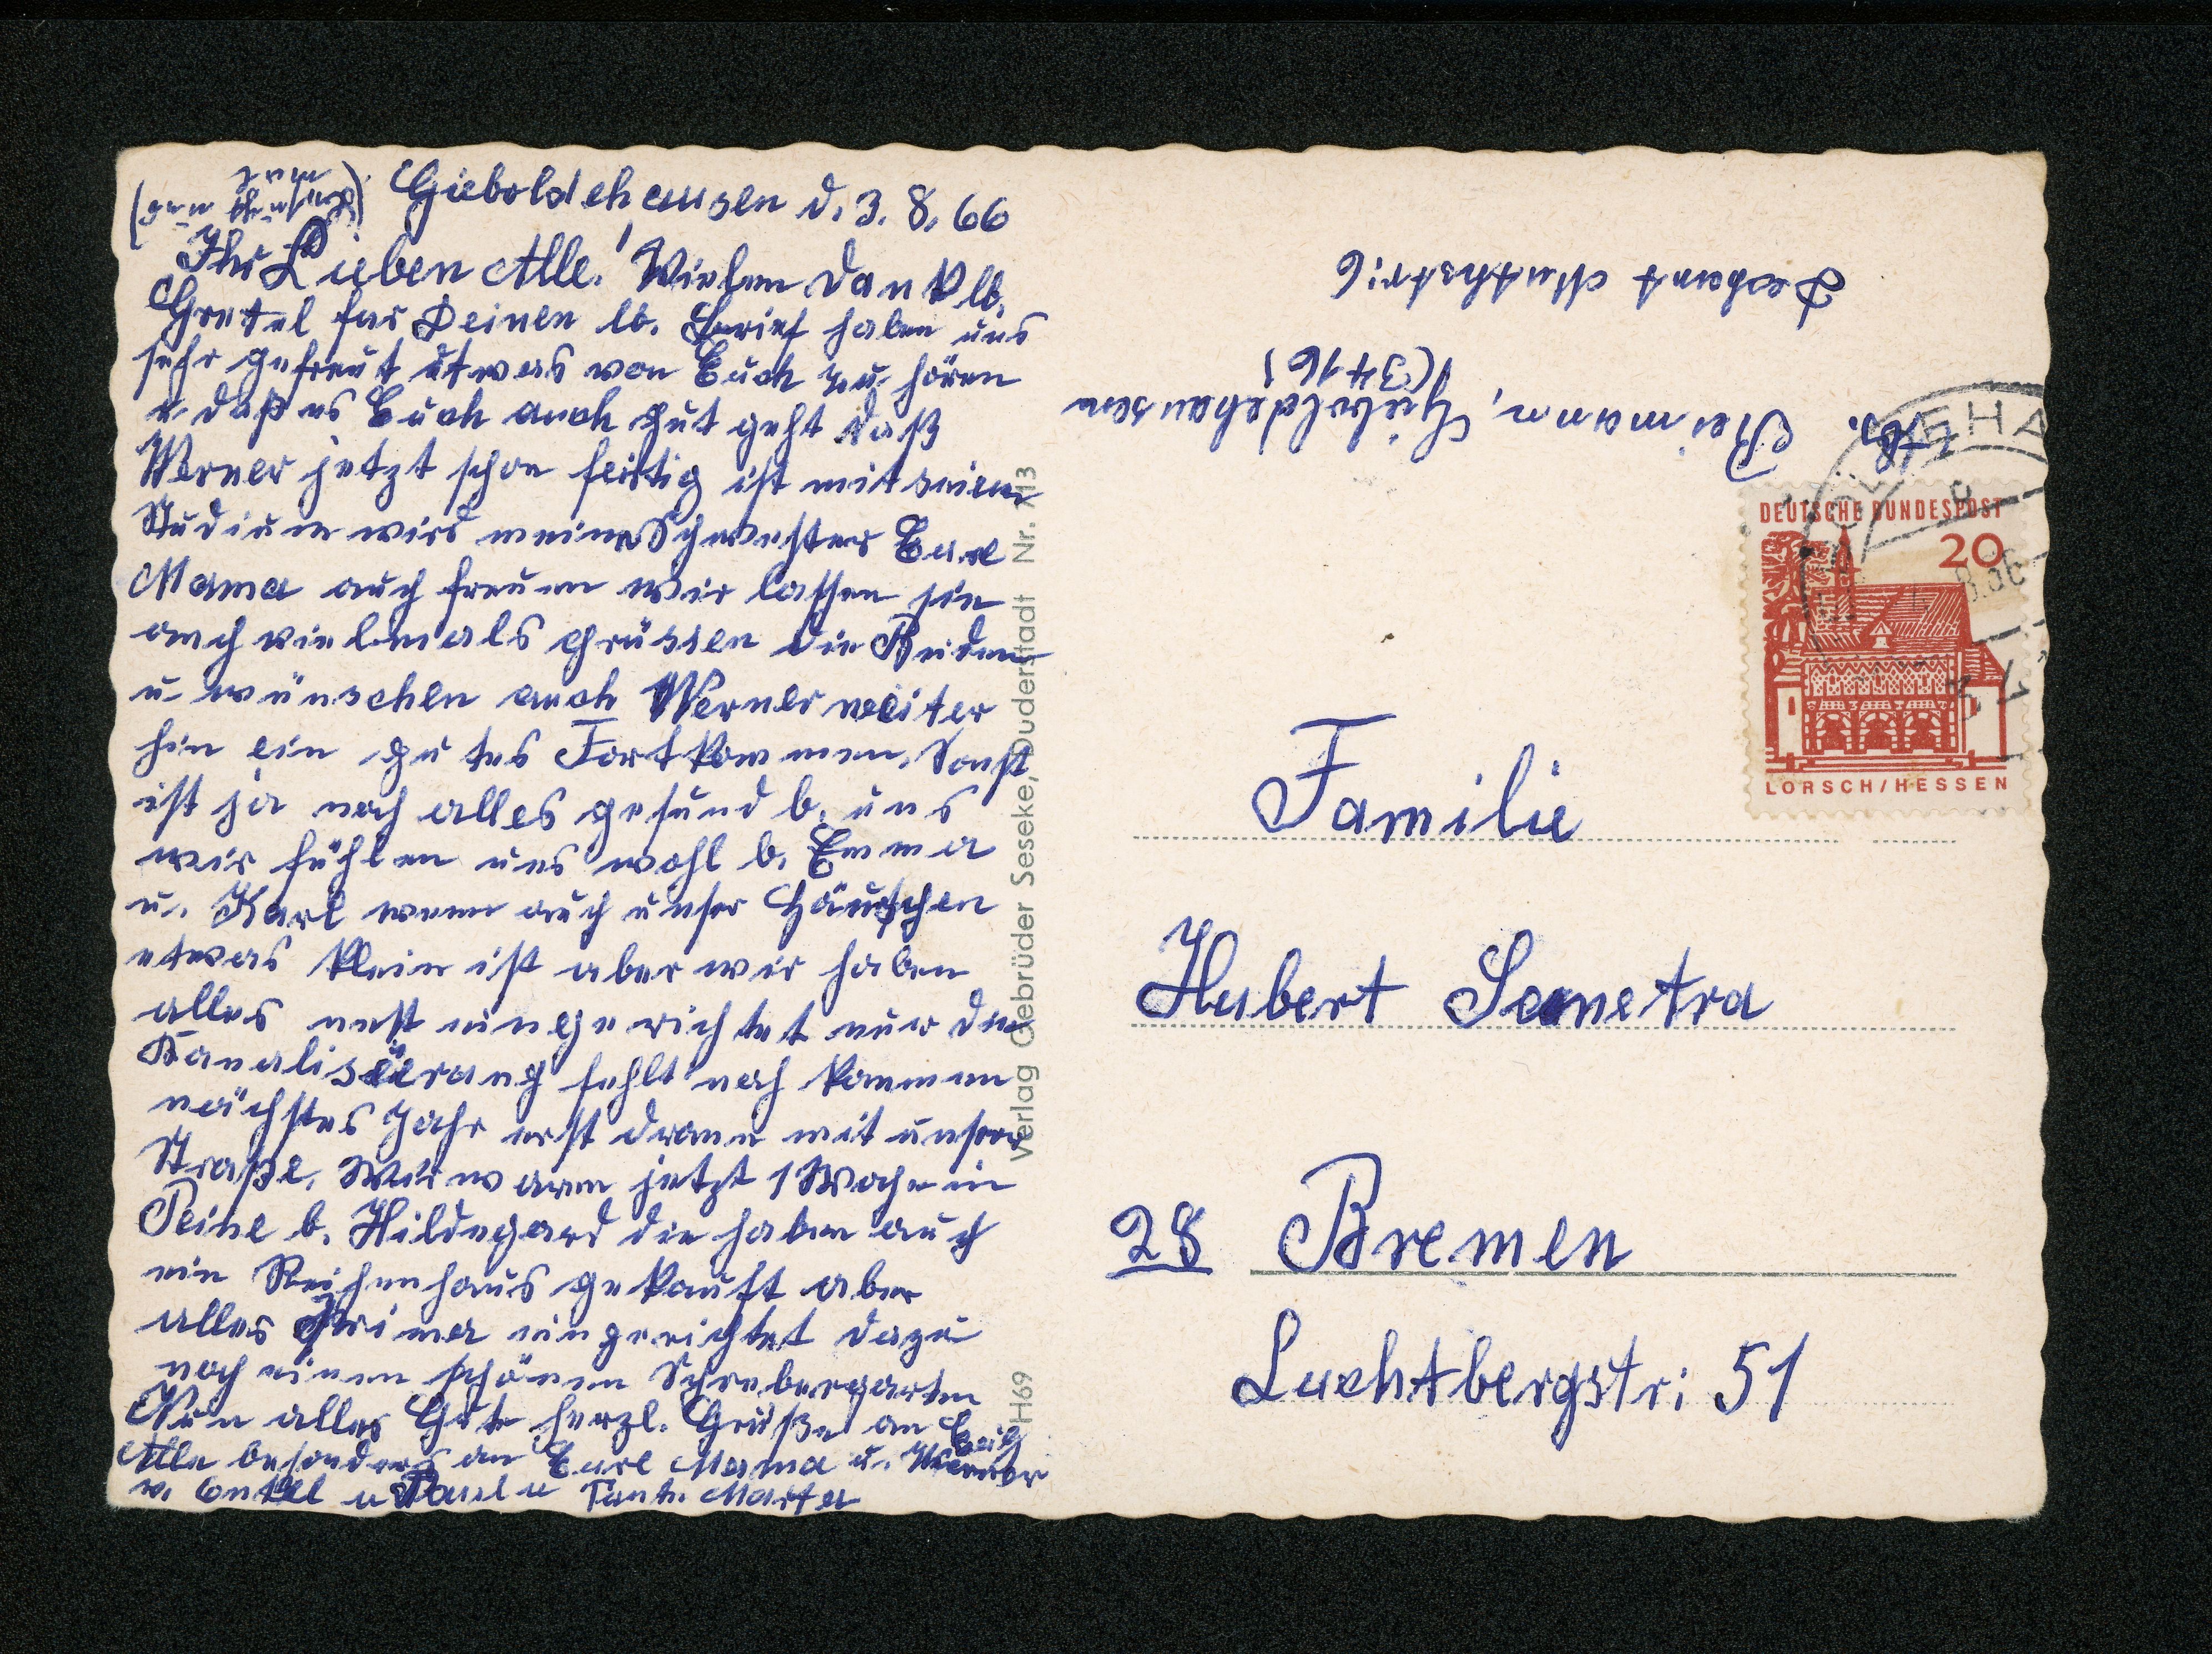 Gieboldehausen d. 3. 8. 66
Ihr Lieben Alle! Vielen Dank lb.
Gretel für Deinen lb. Brief haben uns
sehr gefreut etwas von Euch zu hören
u. daß es Euch auch gut geht daß
Werner jetzt schon fertig ist mit seinem
Studium wird meine Schwester Eure
Mama auch freuen wir lassen sie
auch vielmals grüssen die Beiden
u. wünschen auch Werner weiter
hin ein gutes Fortkommen. Sonst
ist ja noch alles gesund b. uns
wir fühlen uns wohl b. Emma
u. Karl wenn auch unser Häuschen
etwas klein ist aber wir haben
alles nett eingerichtet nur die
Kanalisierung fehlt noch kommen
nächstes Jahr erst drann mit unserer
Straße. Wir waren jetzt 1 Woche in
Peine b. Hildegard die haben auch
ein Reihenhaus gekauft aber
alles Prima eingerichtet dazu
noch einen schönen Schrebergarten
Nun alles Gute herzl. Grüße an Euch
Alle besonders an Eure Mama u. Werner
v. Onkel Paul u Tante Marta
Verlag Gebrüder Seseke, Duderstadt Nr. 713
H69
Abs. Reimann, Gieboldehausen
(3416)
Dechant Muthstr: 6
DEUTSCHE BUNDESPOST
20
LORSCH/HESSEN
Familie
Hubert Semetra
28 Bremen
Luchtbergstr: 51